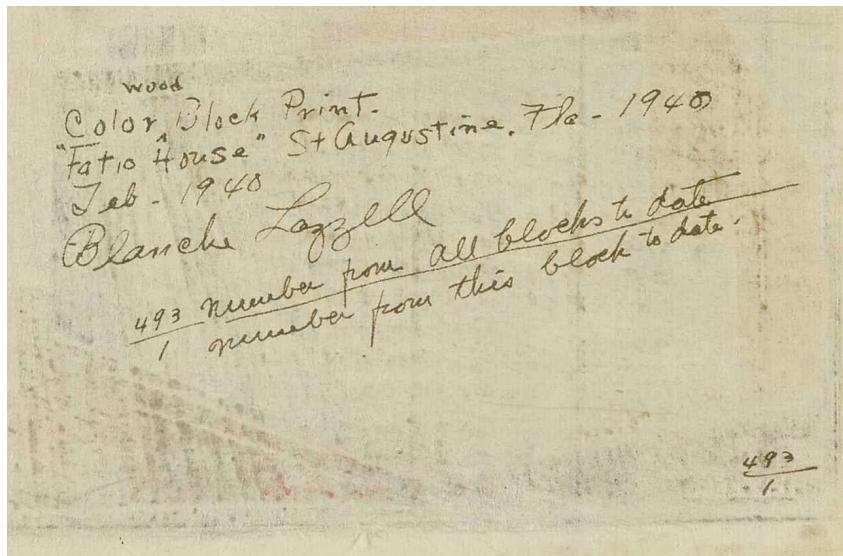 Color wood Block Print.
"Fatio House" St Augustine, Fla - 1940
Feb - 1940
Blanche Lazzell
493 number from all blocks to date
1 number from this block to date.
493
1